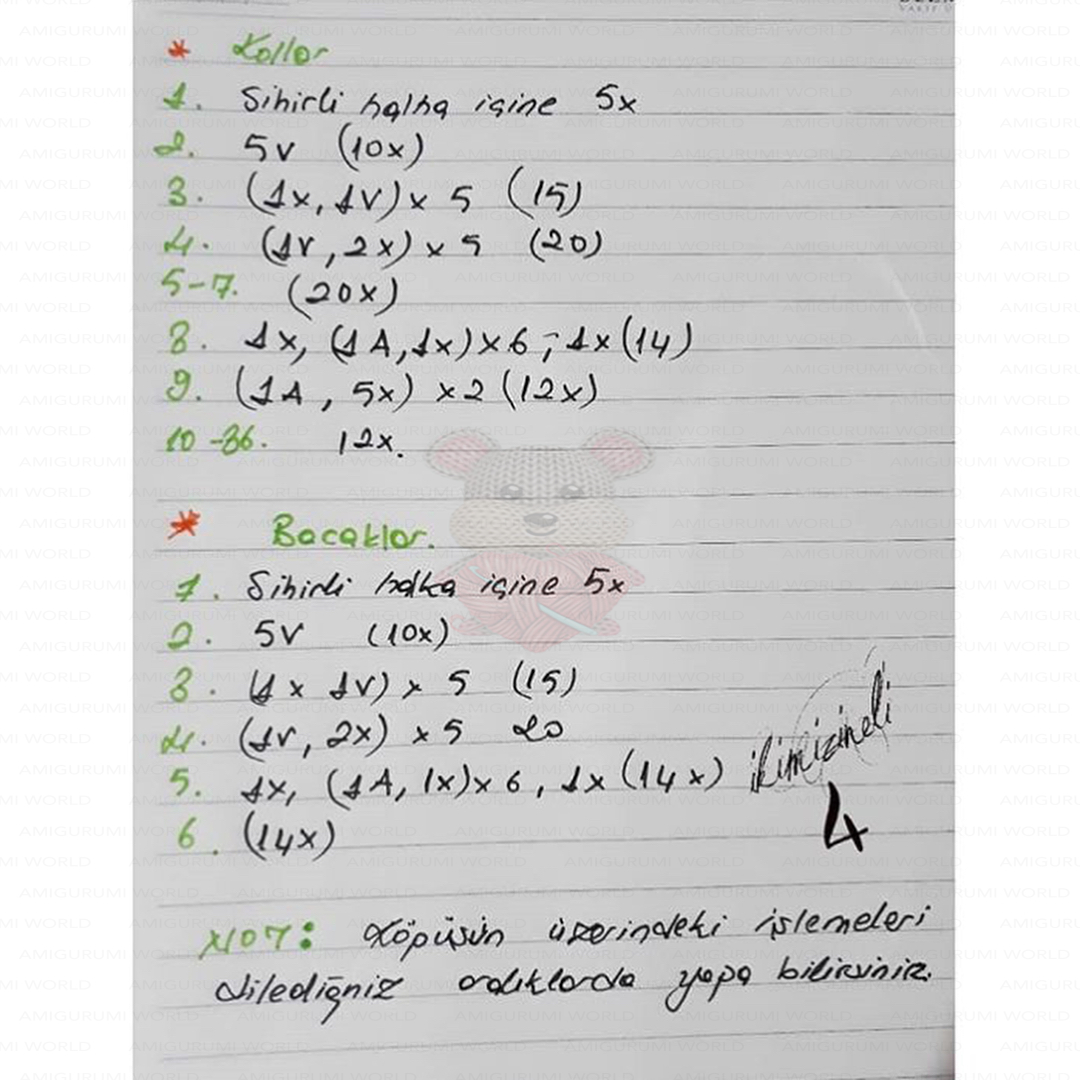 * Kollar
1. Sihirli halka içine 5x
2. 5v (10x)
3. (1x, 1v) x 5 (15)
4. (1v, 2x) x 5 (20)
5-7. (20x)
8. 1x, (1A, 1x) x 6, 1x (14)
9. (1A, 5x) x2 (12x)
10-36. 12x.
* Bacaklar.
1. Sihirli halka içine 5x
2. 5v (10x)
3. (1x 1v) x 5 (15)
4. (1v, 2x) x 5 20
5. 1x, (1A, 1x) x 6, 1x (14x)
6. (14x)
ikimizineli
4
NOT: Köpüşün üzerindeki işlemeleri
dilediğniz aralıklarda yapa bilirsiniz.
AMIGURUMI WORLD